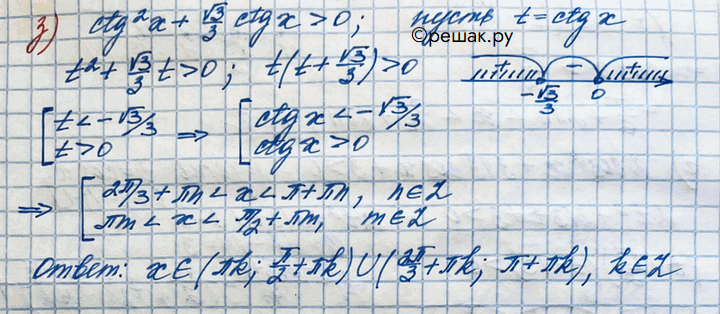 з) ctg²x + √3/3 ctg x > 0; пусть t = ctg x
©решак.ру
t² + √3/3 t > 0; t(t + √3/3) > 0
+ − +
−√3/3 0
[ t < −√3/3 ⇒ [ ctg x < −√3/3
t > 0 ctg x > 0
⇒ [ 2π/3 + πn < x < π + πn, n ∈ Z
πm < x < π/2 + πm, m ∈ Z
Ответ: x ∈ (πk; π/2 + πk) ∪ (2π/3 + πk; π + πk), k ∈ Z